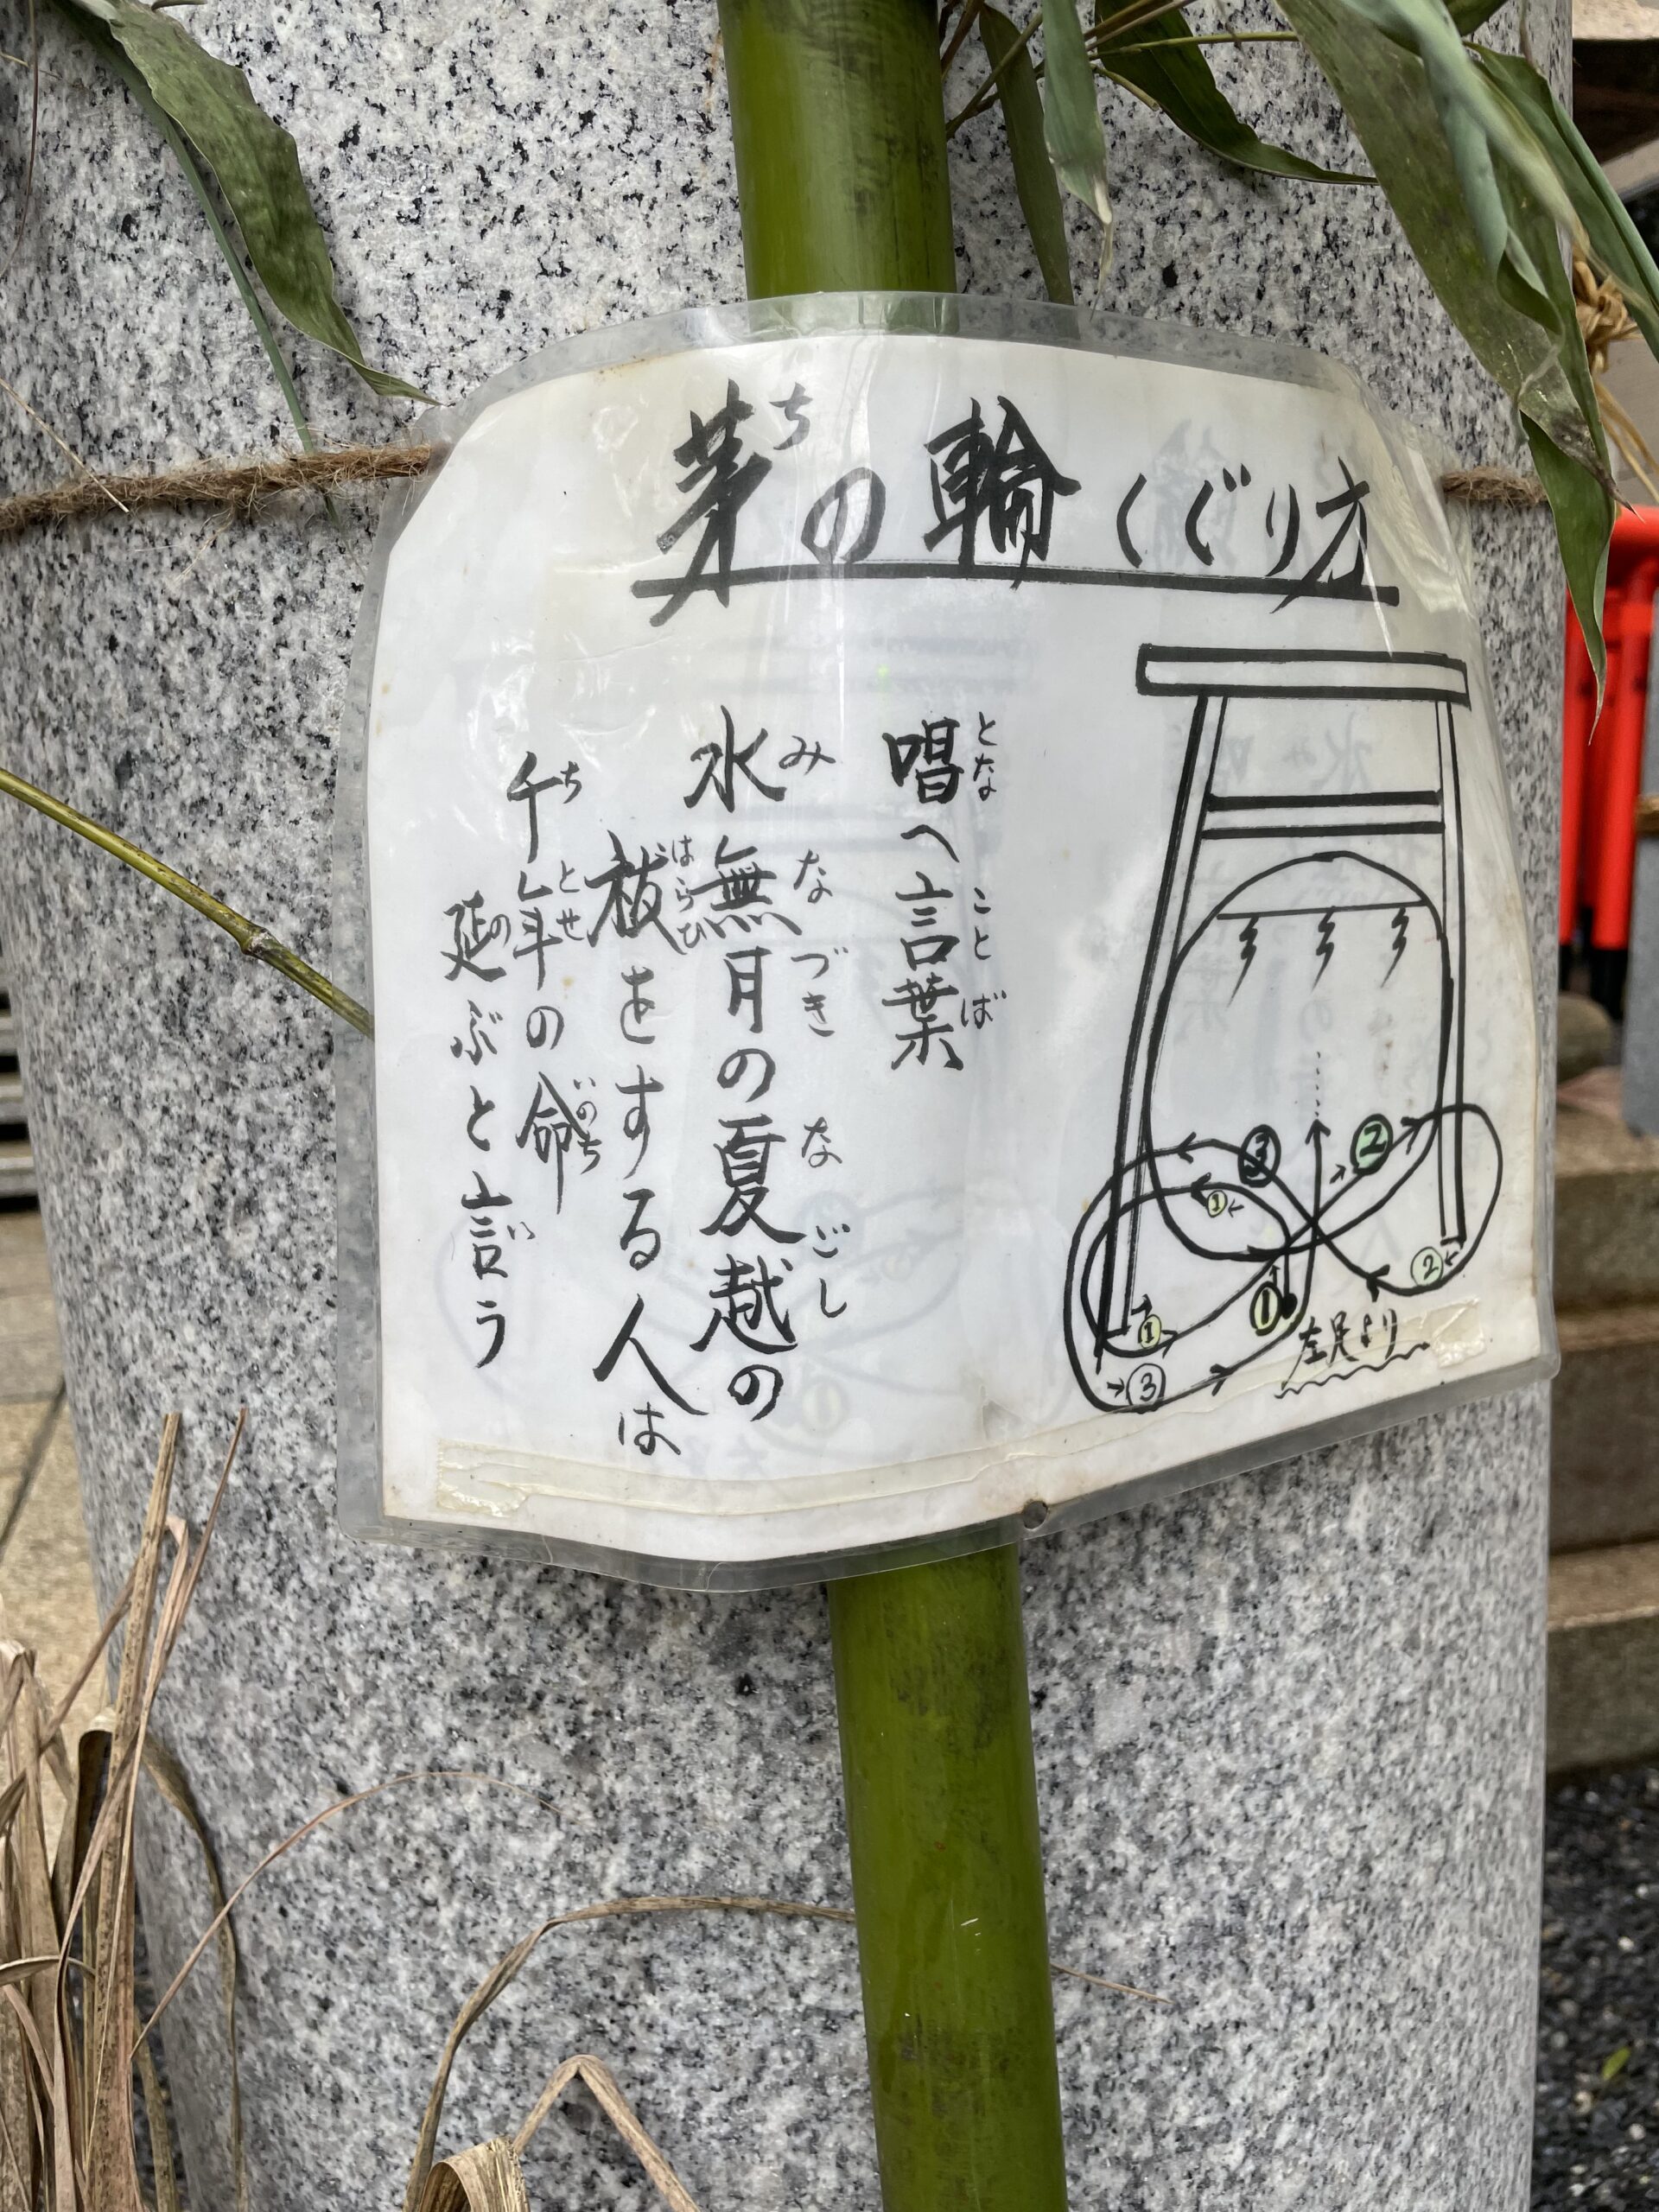 茅の輪くぐり方
ち
唱へ言葉
となことば
水無月の夏越の
みなづきなごし
祓をする人は
はらひ
千年の命
ちとせいのち
延ぶと言う
のい
③
②
①
②
①
①
③
左足より